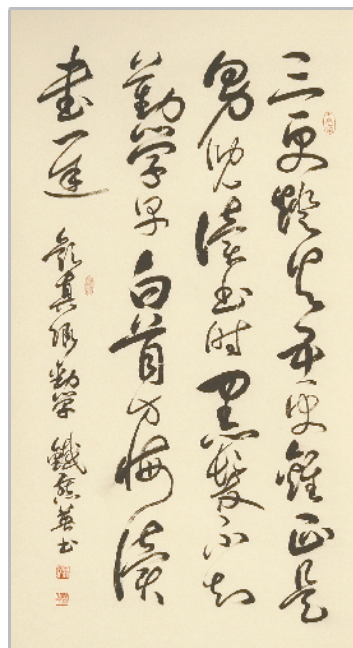 三更燈火五更雞正是
男兒讀書時黑髮不知
勤學早白首方悔讀
書遲
顏真卿勸學 英書